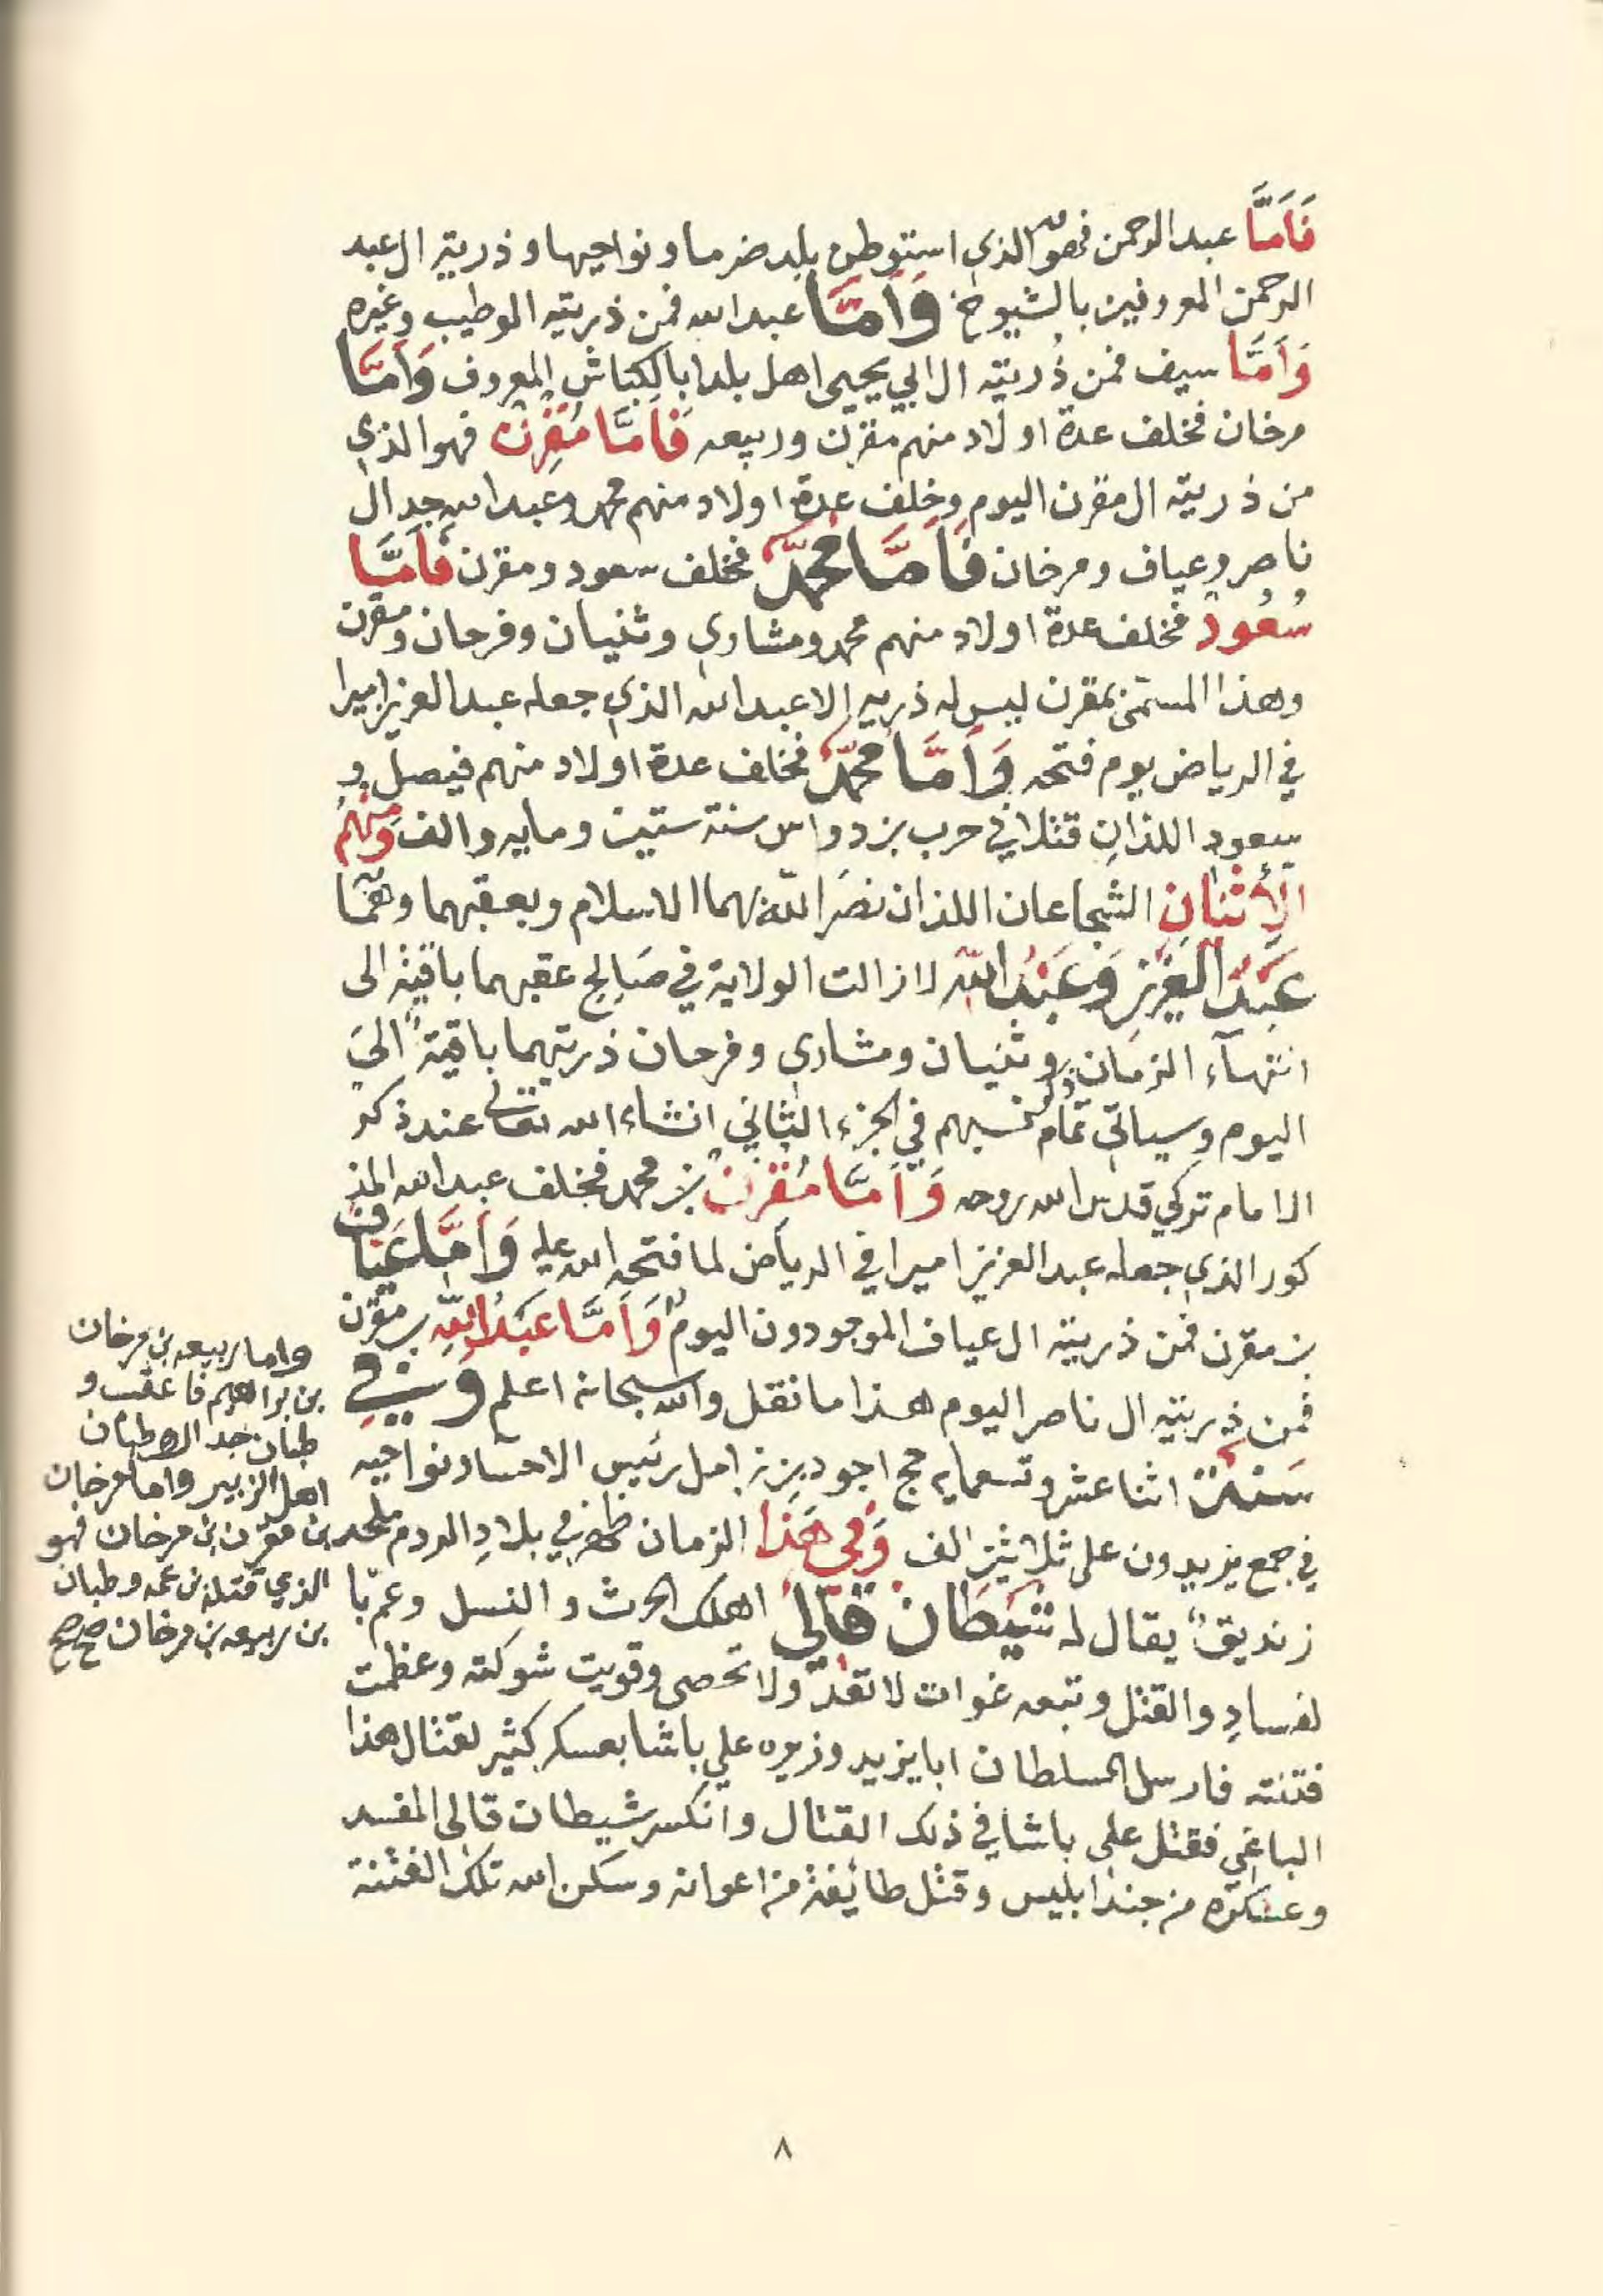 فَاَمَّا عبد الرحمن فهو الذي استوطن بلد ضرما ونواحيها وذريته ال عبد
الرحمن المعروفين بالشيوخ وَاَمَّا عبد الله فمن ذريته الوطيب وغيره
وَاَمَّا سيف فمن ذُريته ال ابي يحيى اهل بلد ابا لكباش المعروف وَاَمَّا
مرخان فخلف عدة اولاد منهم مقرن وربيعه فَاَمَّا مُقرِن فهو الذي
من ذريته ال مقرن اليوم وخلف عدة اولاد منهم محمد وعبد الله جد ال
ناصر وعياف ومرخان فَاَمَّا مُحمَّد فخلف سعود ومقرن فَاَمَّا
سُعُود فخلف عدة اولاد منهم محمد ومشاري وثنيان وفرحان ومقرن
وهذا المسمى بمقرن ليس له ذريه الا عبد الله الذي جعله عبد العزيز اميرا
في الرياض يوم فتحه وَاَمَّا مُحمَّد فخلف عدة اولاد منهم فيصل و
سعود اللذان قتلا في حرب بن دواس سنة ستين ومايه والف وَمِنهُم
الاِثنانِ الشجاعان اللذان نصَر الله بهما الاسلام وبعقبهما وهُمَا
عَبدُ العَزِيز وَعَبدُ الله لا زالت الولاية في صَالح عقبهما باقية الى
انتهآء الزمان وثنيان ومشاري وفرحان ذريتهما باقيةً الىَ
اليوم وسياتي تمام ذكر نسبهم في الجزء الثاني انشاء الله تعالى عند ذكر
الامام تركي قدس الله روحه وَاَمَّا مُقرِن بن محمد فخلف عبد الله المذ
كور الذي جعله عبد العزيز اميرا في الرياض لما فتحه الله عليه وَاَمَّا عَيَاف
بن مقرن فمن ذريته ال عياف الموجودون اليوم وَاَمَّا عَبدُ اللهِ بن مقرن
فمن ذريته ال ناصر اليوم هذا ما نقل والله سبحانه اعلم وَفِي
سَنَة اثنا عشر وتسعمايه حج اجود بن زامل رئيس الاحسا ونواحيه
في جمع يزيدون على ثلاثين الف وَفي هَذا الزمان ظهر في بلادِ الروم ملحد
زنديق يقال له شَيطَان قالي اهلك الحرث والنسل وعم با
لفسادِ والقتل وتبعه غوات لا تعدّ ولا تحصى وقويت شوكته وعظمت
فتنته فارسل السلطان ابا يزيد وزيره علي باشا بعسكر كثير لقتال هذا
الباغي فقتل علي باشا في ذلك القتال وانكسر شيطان قالي المفسد
وعسكره من جند ابليس وقتل طائفة من اعوانه وسكن الله تلك الفتنة
واما ربيعه بن مرخان
بن ابراهيم فاعقب و
طبان جد ال وطبان
اهل الزبير واما مرخان
بن مقرن بن مرخان فهو
الذي قتله بن عمه وطبان
بن ربيعه بن مرخان صح صح
٨